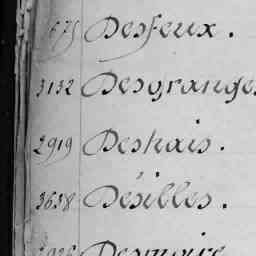 675 Desfeux.
3132 Desgranges
2919 Deshais.
3638 Désilles.